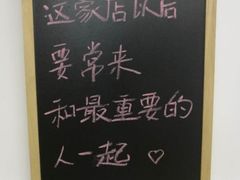 这家店以后
要常来
和最重要的
人一起♡